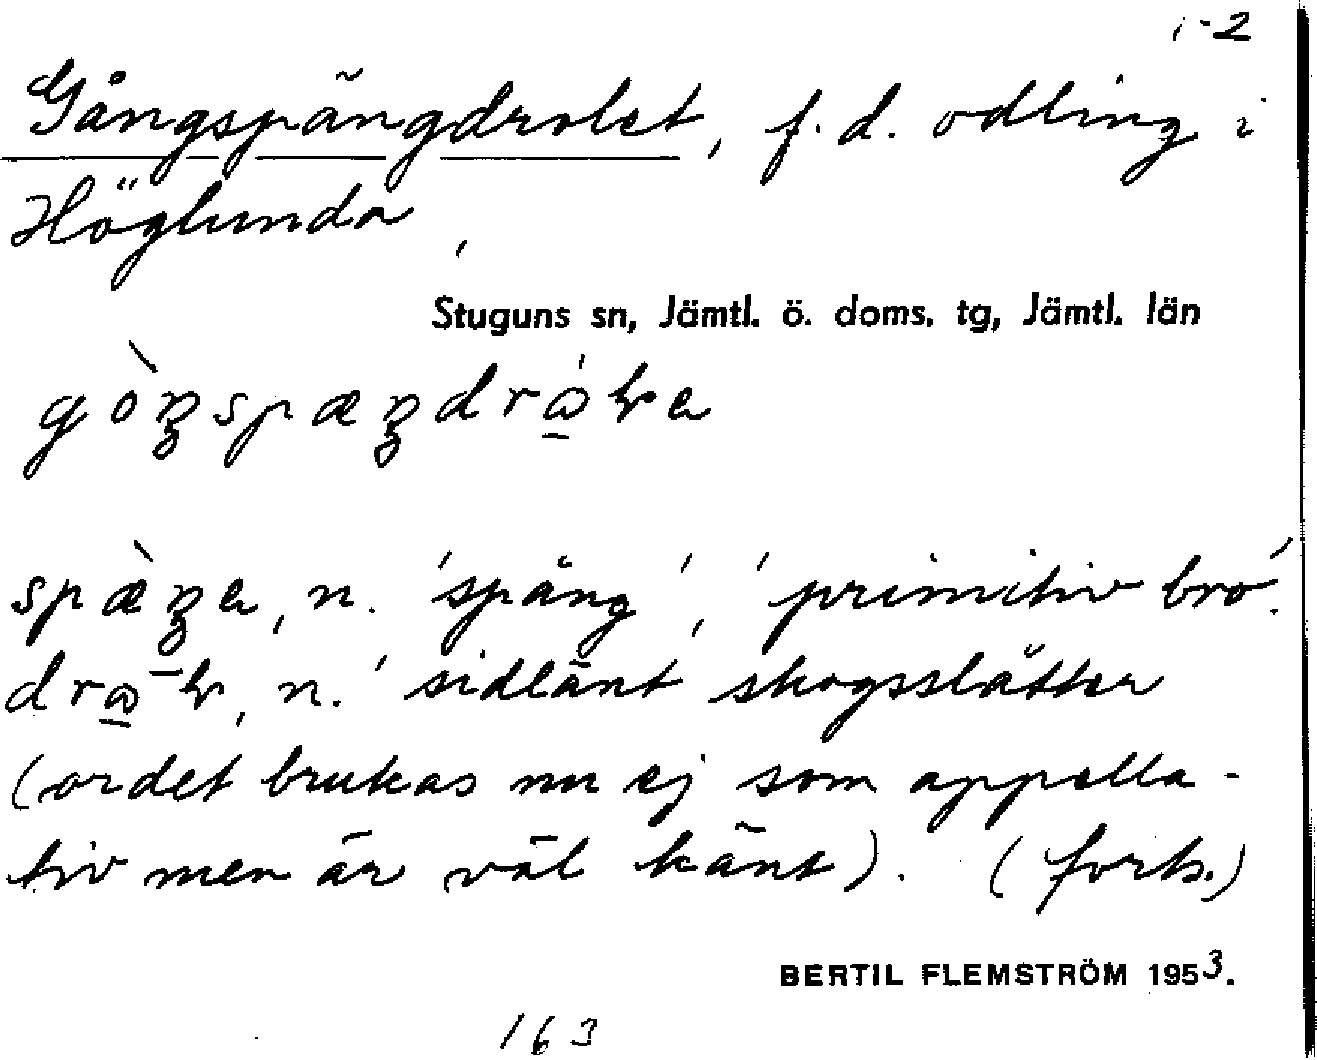 1-2
Gångspängdrolet, f.d. odling i
Höglunda,
Stuguns sn, Jämtl. ö. doms. tg, Jämtl. län
n. 'spång', 'primitiv bro'.
n. 'sidlänt skogsslåtter
(ordet brukas nu ej som appella-
tiv men är väl känt). (forts.)
BERTIL FLEMSTRÖM 1953.
163